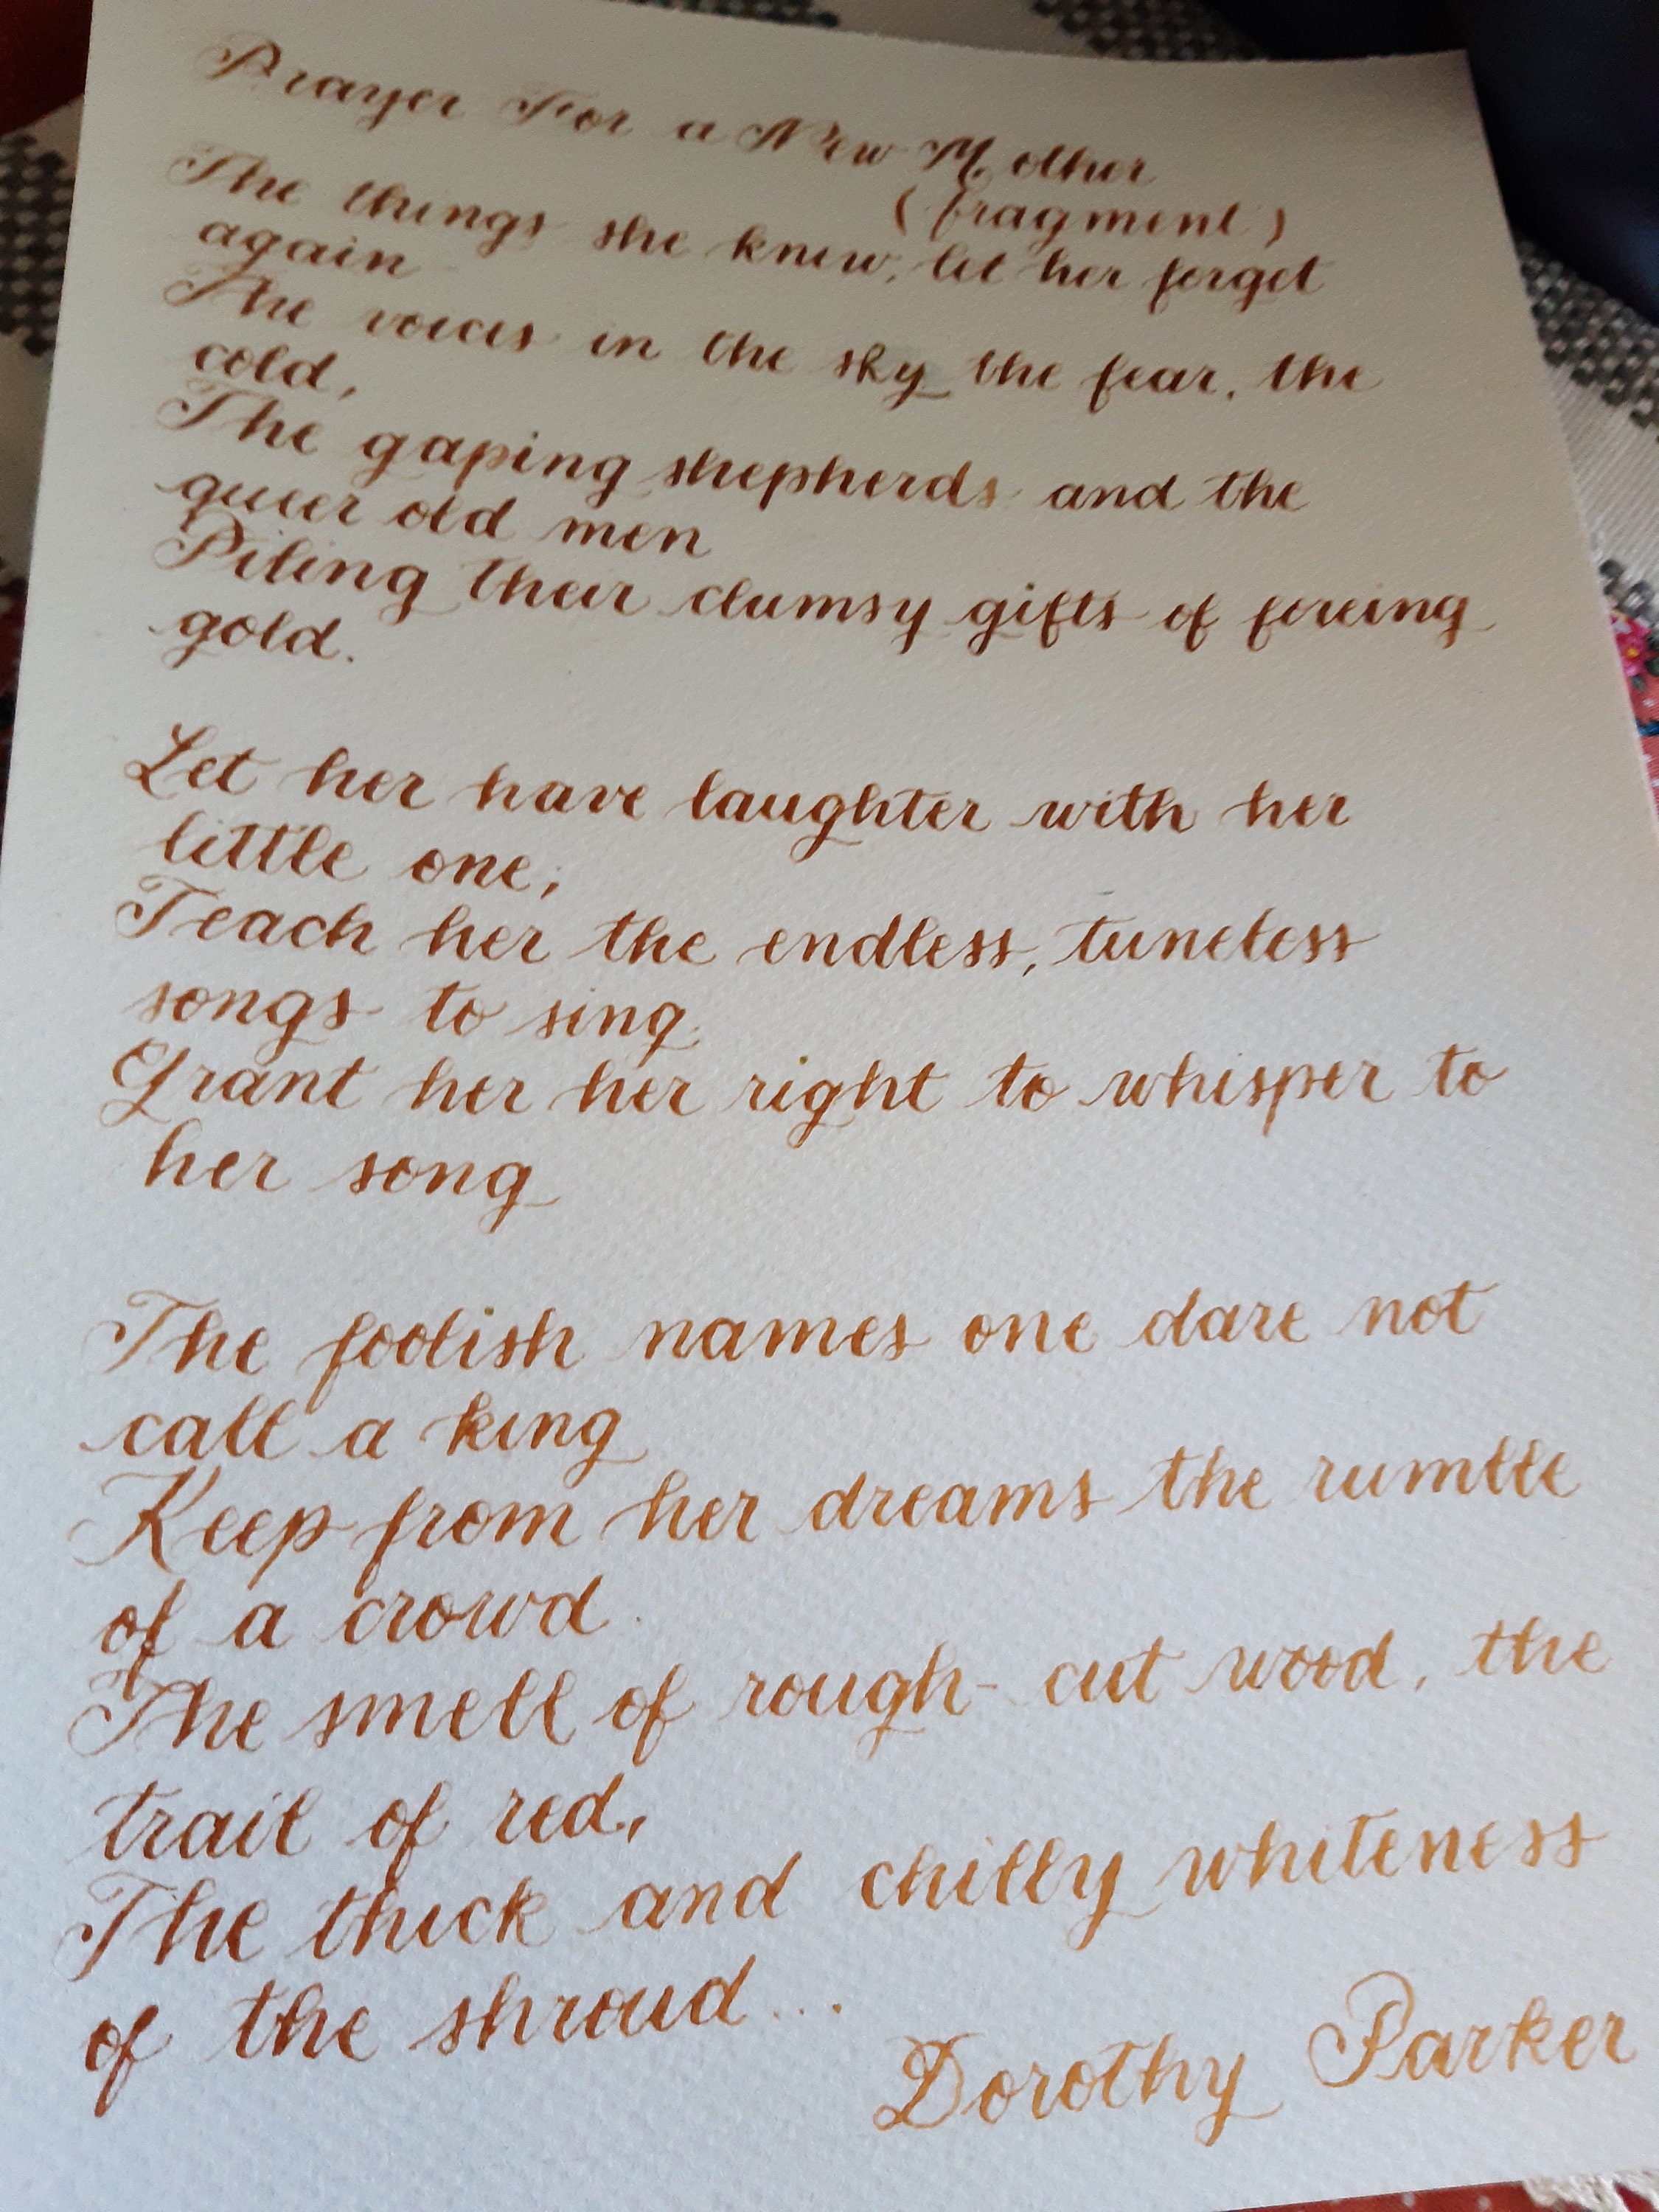 Prayer For a New Mother
(fragment)
The things she knew, let her forget
again
The voices in the sky the fear, the
cold,
The gaping shepherds and the
queer old men
Piling their clumsy gifts of foreing
gold.
Let her have laughter with her
little one;
Teach her the endless, tuneless
songs to sing,
Grant her her right to whisper to
her song
The foolish names one dare not
call a king
Keep from her dreams the rumble
of a crowd
The smell of rough-cut wood, the
trail of red,
The thick and chilly whiteness
of the shroud...
Dorothy Parker